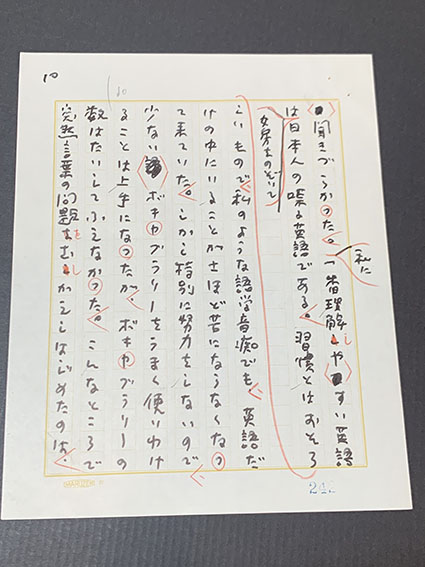 聞きづらかった。一番理解しやすい英語
私に
は日本人の喋る英語である。習慣とはおそろ
女房をのぞいて
しいもので私のような語学音痴でも、英語だ
けの中にいることがさほど苦にならなくなっ
て来ていた。しかし特別に努力をしないので、
少ない ボキャブラリーをうまく使いわけ
ることは上手になったが、ボキャブラリーの
数はたいしてふえなかった。こんなところで
突然言葉の問題をむしかえしはじめたのは、
10
24.